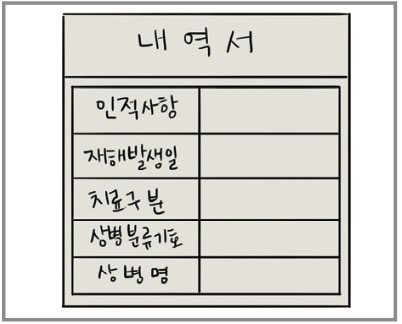 내역서
인적사항
재해발생일
치료구분
상병분류기호
상병명